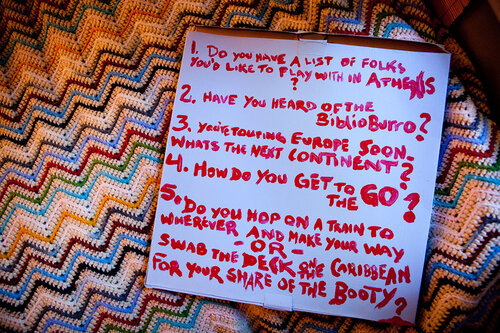 1. Do you have a list of folks
you'd like to play with in Athens
?
2. Have you heard of the
BiblioBurro?
3. You're touring Europe soon.
Whats the next continent?
4. How do you get to
the GO?
5. Do you hop on a train to
wherever and make your way
- OR -
swab the deck in the Caribbean
for your share of the booty?